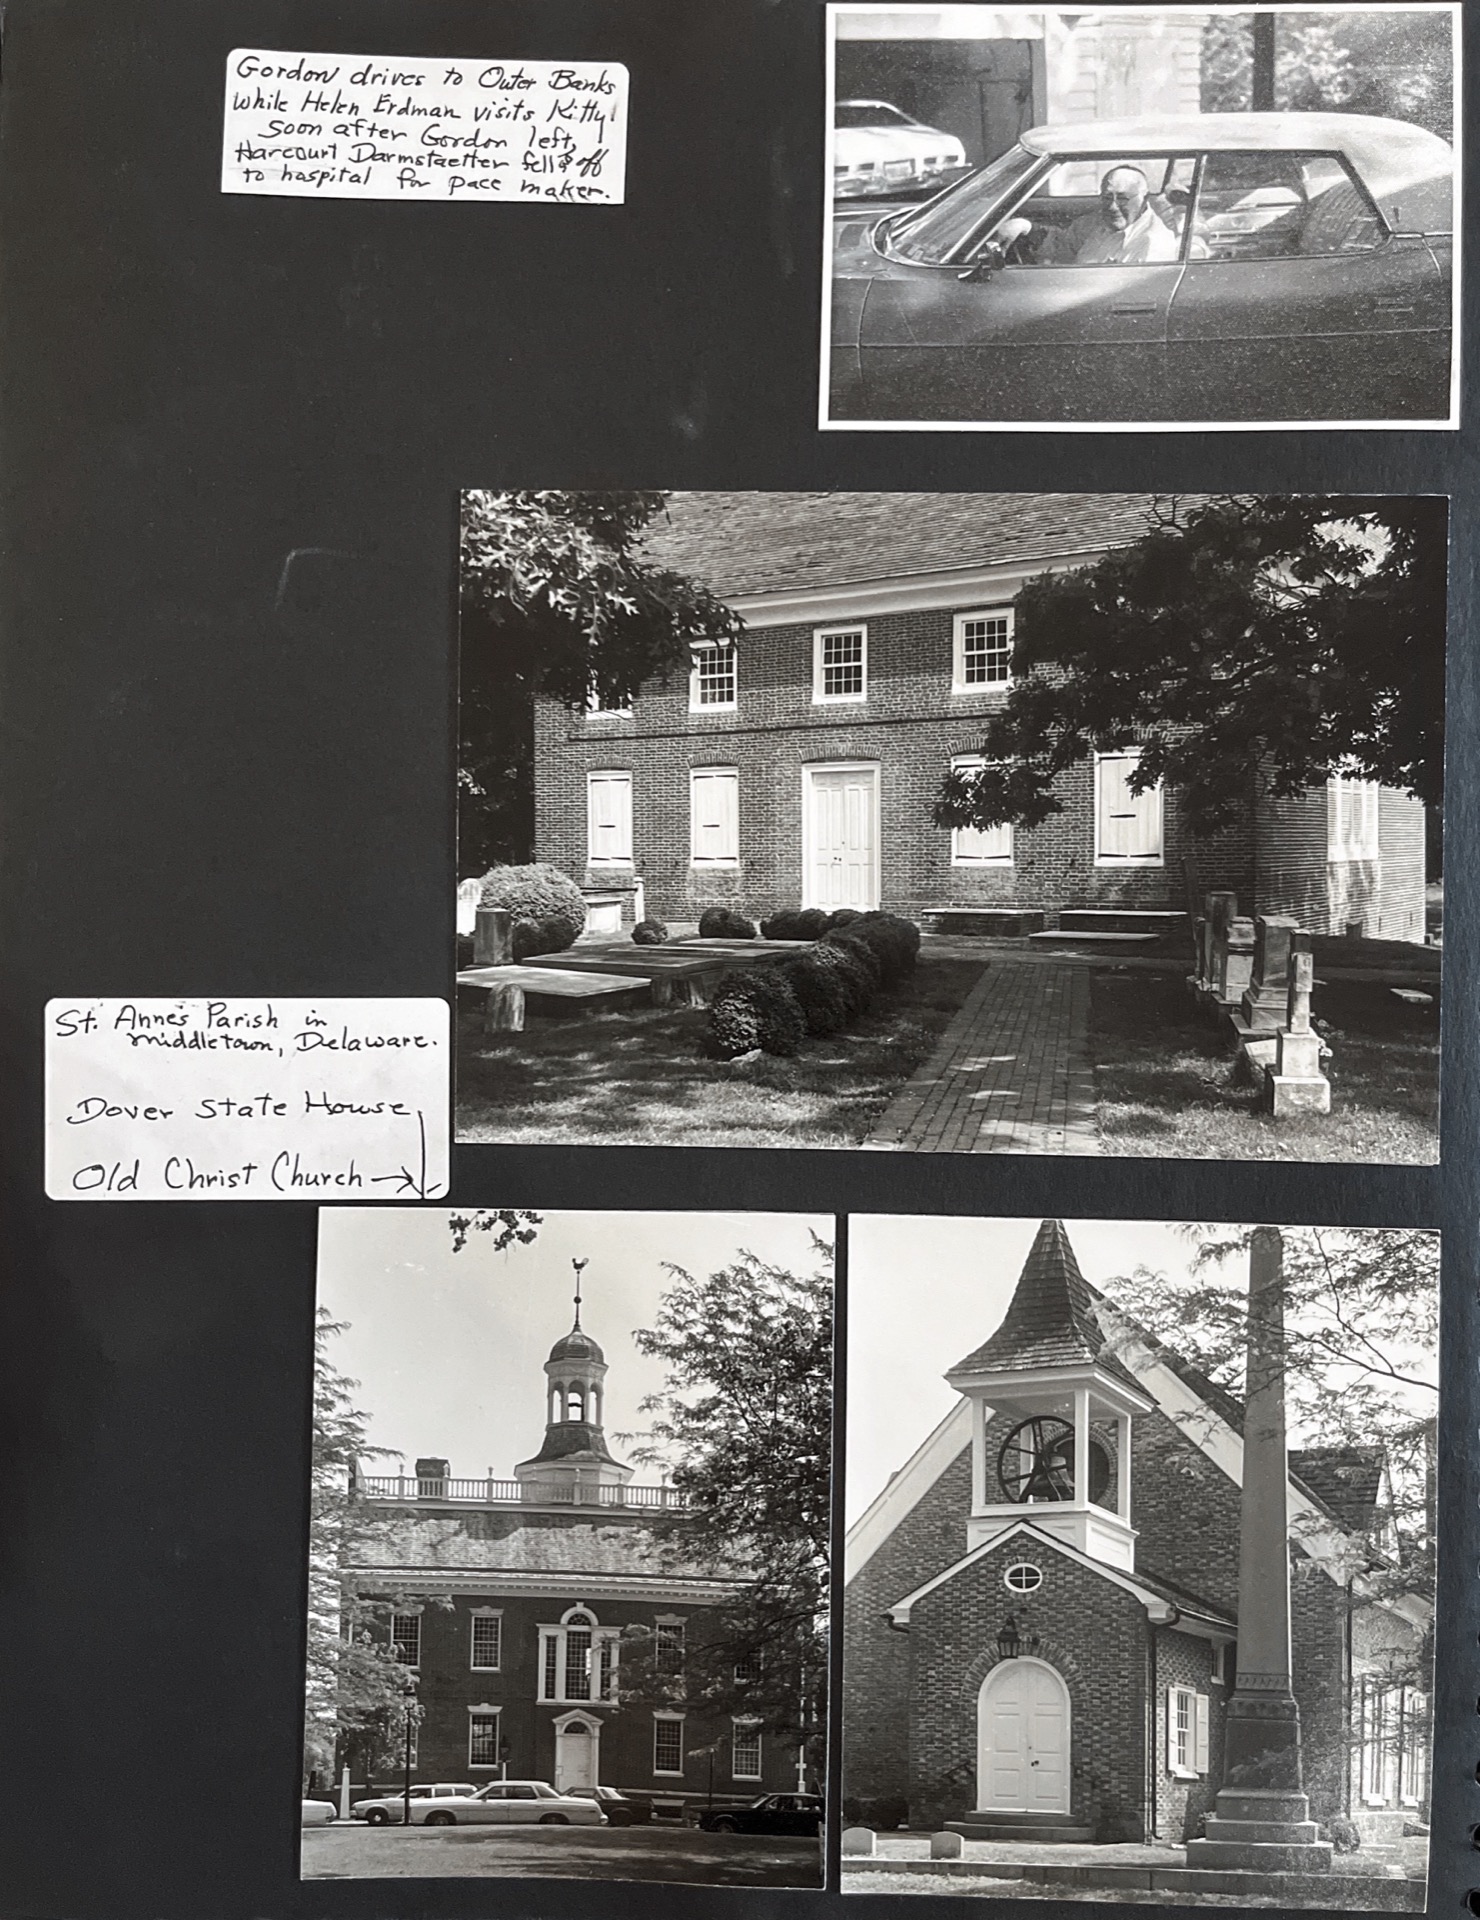 Gordon drives to Outer Banks
while Helen Erdman visits Kitty!
Soon after Gordon left,
Harcourt Darmstaetter fell & off
to hospital for pace maker.
St. Anne's Parish in
Middletown, Delaware.
Dover State House
Old Christ Church